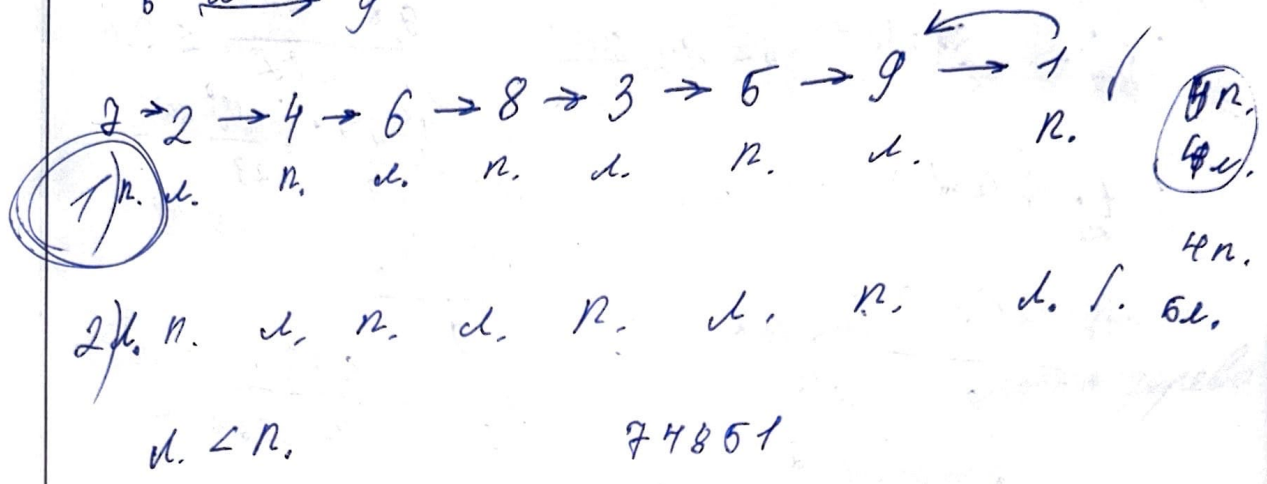 7 → 2 → 4 → 6 → 8 → 3 → 5 → 9 → 1
1) п. л. п. л. п. л. п. л. п. 5п. 4л.
2) л. п. л. п. л. п. л. п. л. 4п. 5л.
л. < п. 74851